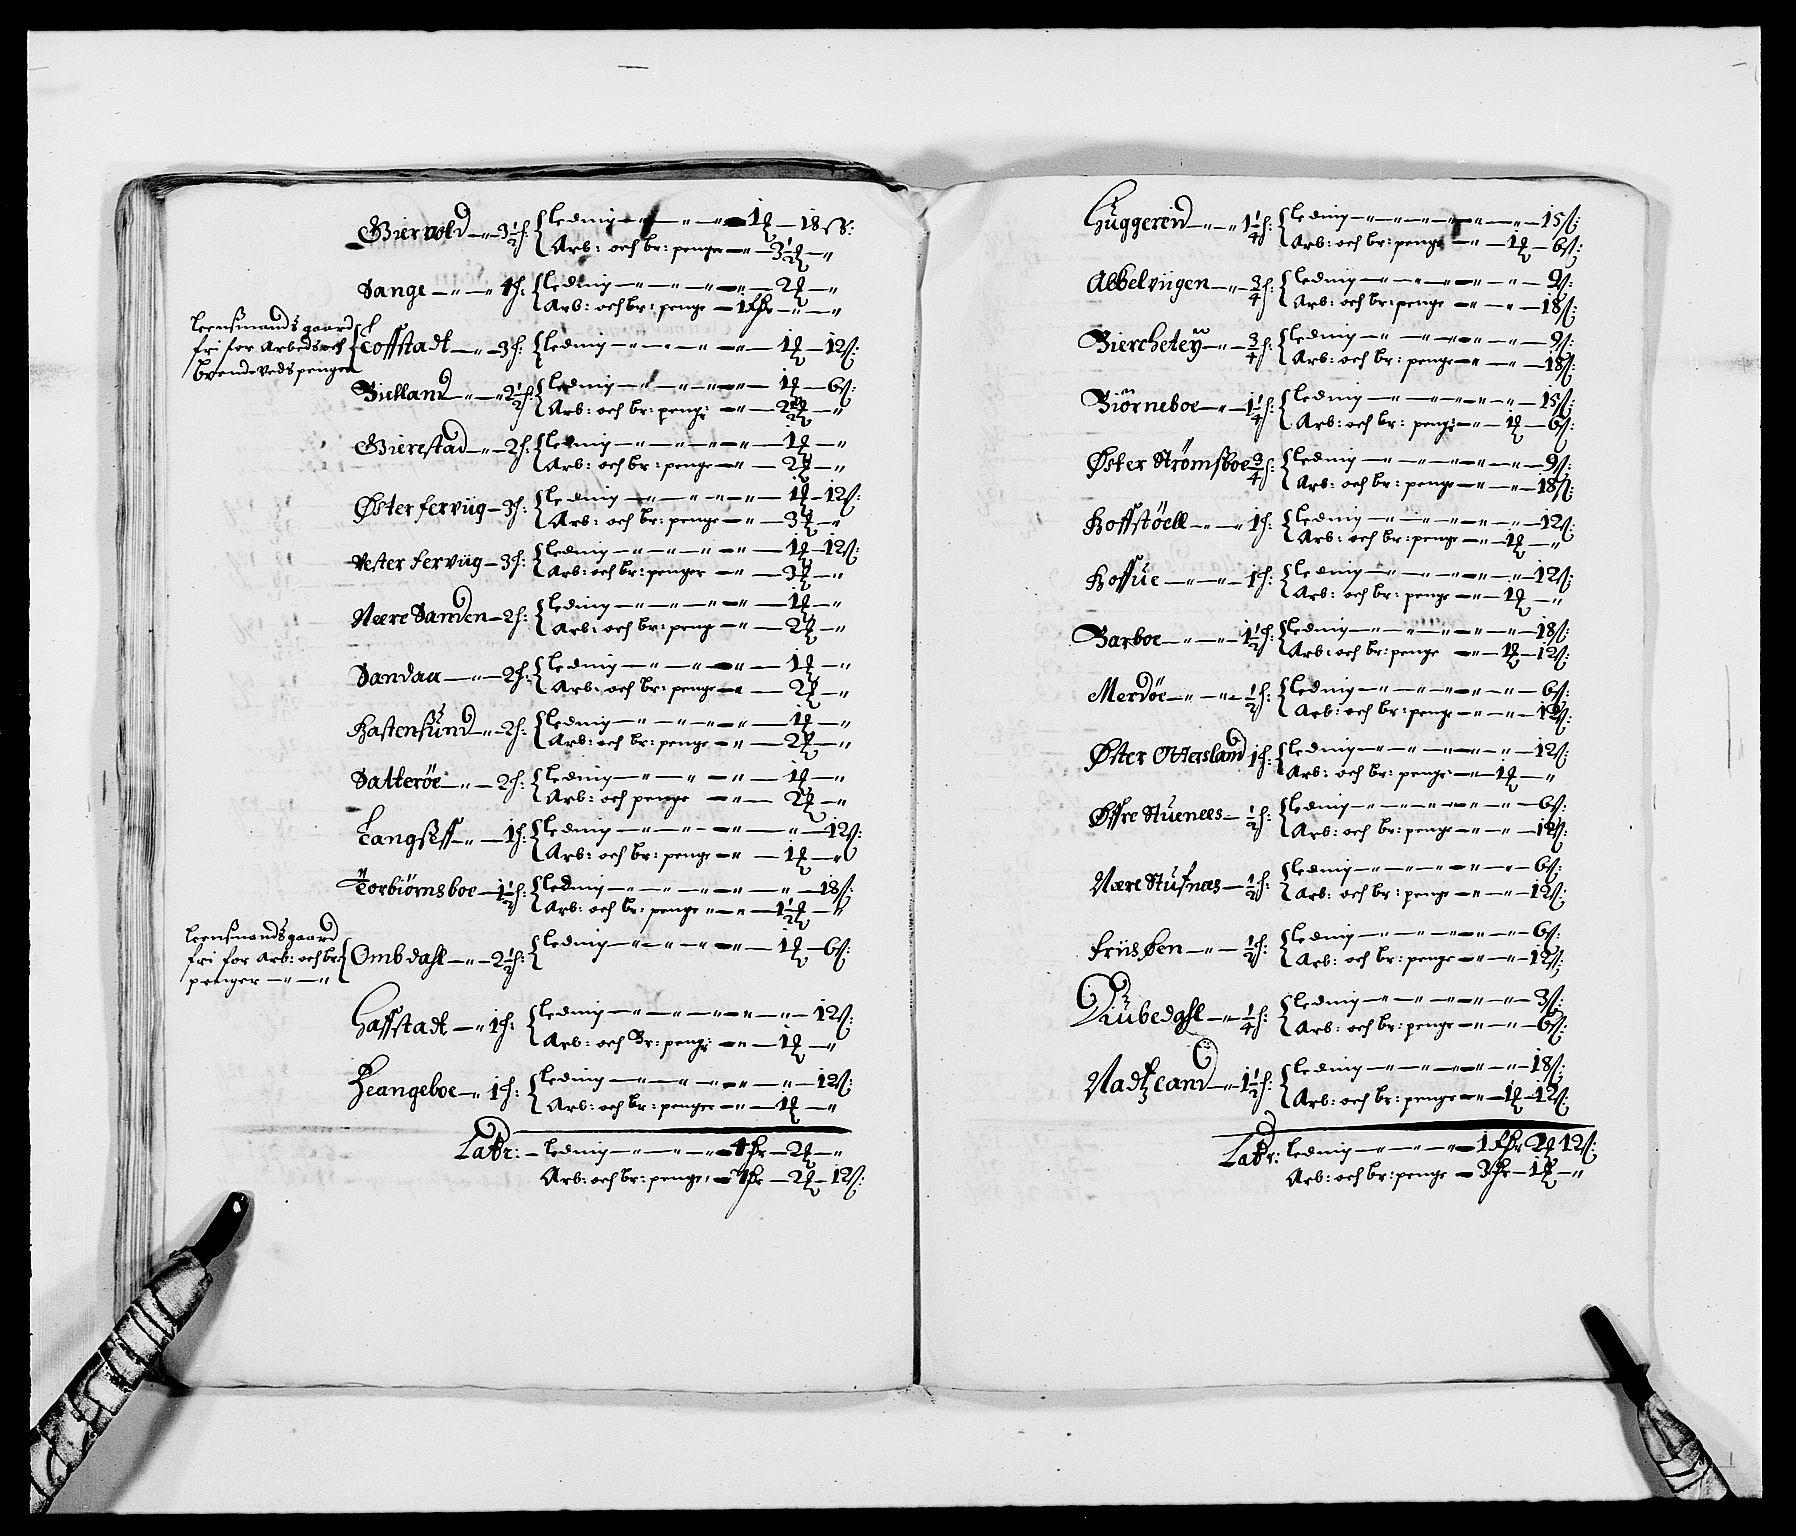 Giervold — „ — 3½ h: { leding — „ — „ — „ — 1 ℔ — 18 ß:
Arb: och br: penge — „ — 3½ ℔ — „
Sange — „ — „ 4 h: { leding — „ — „ — „ — 2 ℔ — „
Arb: och br: penge — 1 Rdr — „ — „
leensmands gaard
fri for Arbeds och
brendeveds penger
Loffstadt — „ — 3 h: { leding — „ — „ — „ — 1 ℔ — 12 ß:
Bielland — „ — 2½ h: { leding — „ — „ — „ — 1 ℔ — 6 ß:
Arb: och br: penge — „ — 2½ ℔ — „
Gierestad — „ — 2 h: { leding — „ — „ — „ — 1 ℔ — „
Arb: och br: penge — „ — 2 ℔ — „
Øster ferviig — 3 h: { leding — „ — „ — „ — 1 ℔ — 12 ß:
Arb: och br: penge — „ — 3 ℔ — „
Vester ferviig — 3 h: { leding — „ — „ — „ — 1 ℔ — 12 ß:
Arb: och br: penger — „ — 3 ℔ — „
Nære Sanden — 2 h: { leding — „ — „ — „ — 1 ℔ — „
Arb: och br: peng — „ — 2 ℔ — „
Sandaa — „ — 2 h: { leding — „ — „ — „ — 1 ℔ — „
Arb: och br: penge — „ — 2 ℔ — „
Hastensund — „ — 2 h: { leding — „ — „ — „ — 1 ℔ — „
Arb: och br: penge — „ — 2 ℔ — „
Satterøe — „ — 2 h: { leding — „ — „ — „ — 1 ℔ — „
Arb: och penge — „ — 2 ℔ — „
Langseff — „ — 1 h: { leding — „ — „ — „ — „ — 12 ß:
Arb: och br: penge — „ — 1 ℔ — „
Torbiørnsboe — 1½ h: { leding — „ — „ — „ — „ — 18 ß:
Arb: och br: penge — „ — 1½ ℔ — „
leensmands gaard
fri for Arb: och br:
penger — „ — „
Ombdahl — „ — 2½ h: { leding — „ — „ — „ — 1 ℔ — 6 ß:
Haffstadt — „ 1 h: { leding — „ — „ — „ — „ — 12 ß:
Arb: och Br: penge — „ — 1 ℔ — „
Heangeboe — „ 1 h: { leding — „ — „ — „ — „ — 12 ß:
Arb: och br: penger — „ — 1 ℔ — „
Latr: — leding — „ — „ — „ — 4 Rdr — 2 ℔ — „
Arb: och br: penge — 7 Rdr — 2 ℔ — 12 ß:
Huggerein — „ — „ 1¼ h: { leding — „ — „ — „ — „ — 15 ß:
Arb: och br: penge — „ — 1 ℔ — 6 ß:
Abbelviigen — „ — ¾ h: { leding — „ — „ — „ — „ — 9 ß:
Arb: och br: penge — „ — „ — 18 ß:
Bierchetey — „ — ¾ h: { leding — „ — „ — „ — „ — 9 ß:
Arb: och br: penge — „ — „ — 18 ß:
Biørneboe — „ — 1¼ h: { leding — „ — „ — „ — „ — 15 ß:
Arb: och br: penge — „ — 1 ℔ — 6 ß:
Øster Strømsboe ¾ h: { leding — „ — „ — „ — „ — 9 ß:
Arb: och br: penge — „ — „ — 18 ß:
Hoffstøell — „ — „ 1 h: { leding — „ — „ — „ — „ — 12 ß:
Arb: och br: penge — „ — 1 ℔ — „
Hoffue — „ — „ — 1 h: { leding — „ — „ — „ — „ — 12 ß:
Arb: och br: penge — „ — 1 ℔ — „
Barboe — „ — „ — 1½ h: { leding — „ — „ — „ — „ — 18 ß:
Arb: och br: penge — „ — 1 ℔ — 12 ß:
Merdøe — „ — „ — ½ h: { leding — „ — „ — „ — „ — 6 ß:
Arb: och br: penge — „ — „ — 12 ß:
Øster Ottersland 1 h: { leding — „ — „ — „ — „ — 12 ß:
Arb: och br: penge — „ — 1 ℔ — „
Øffre Stuenees — ½ h: { leding — „ — „ — „ — „ — 6 ß:
Arb: och br: penge — „ — „ — 12 ß:
Nære Stufnæs — ½ h: { leding — „ — „ — „ — „ — 6 ß:
Arb: och br: penge — „ — „ — 12 ß:
friisøen — „ — ½ h: { leding — „ — „ — „ — „ — 6 ß:
Arb: och br: penge — „ — „ — 12 ß:
Viubedahl — „ — ¼ h: { leding — „ — „ — „ — „ — 3 ß:
Arb: och br: penge — „ — „ — 6 ß:
Nadtzland — „ 1½ h: { leding — „ — „ — „ — „ — 18 ß:
Arb: och br: penge — „ — 1 ℔ — 12 ß:
Latr: leding — „ — „ — „ — 1 Rdr 2 ℔ 12 ß:
Arb: och br: penge — 3 Rdr — 1 ℔ — „